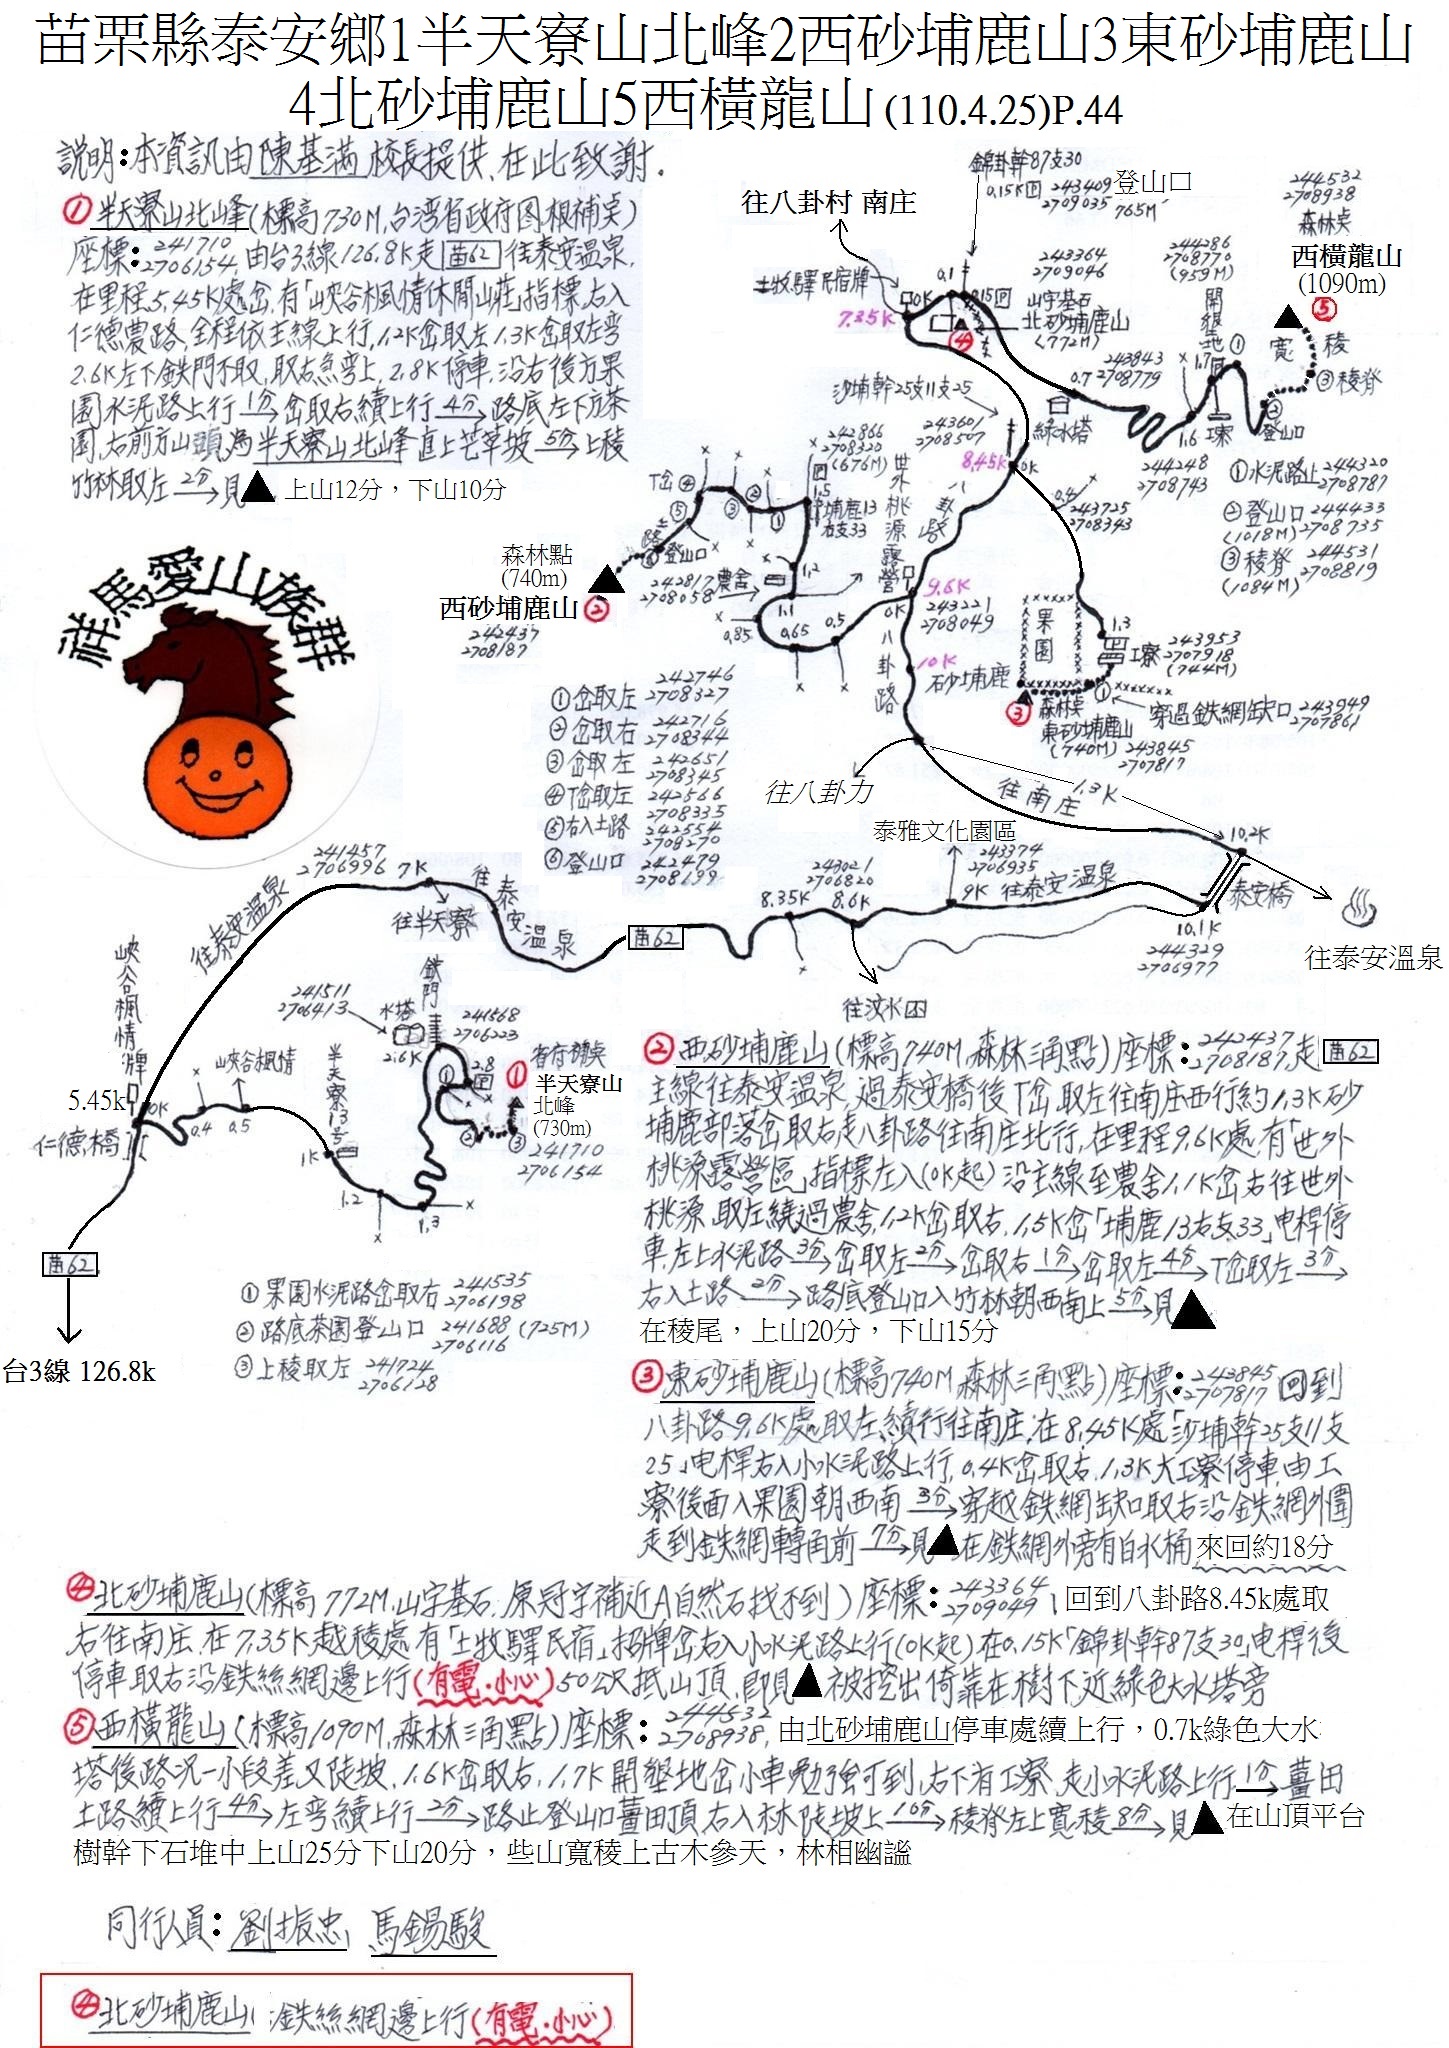 苗栗縣泰安鄉1半天寮山北峰2西砂埔鹿山3東砂埔鹿山
4北砂埔鹿山5西橫龍山(110.4.25)P.44
說明:本資訊由陳基滿校長提供、在此致謝.
①半天寮山北峰(標高730M,台湾省政府图根補点)
座標:241710 2706154,由台3線126.8K走苗62往泰安温泉,
在里程5.45K處岔,有「峽谷楓情休閒山莊」指標,右入
仁德農路,全程依主線上行,1.2K岔取左1.3K岔取左弯
2.6K左下鉄門不取,取右急弯上,2.8K停車,沿右後方果
園水泥路上行1分→岔取右續上行4分→路底左下方茶
園,右前方山頭為半天寮山北峰直上芒草坡5分→上稜
竹林取左2分→見▲上山12分，下山10分
祥馬愛山族群
錦卦幹87支30
0.15K回 243409 2709035
登山口
765M
往八卦村 南庄
土牧驛民宿牌
7.35K
0K
0.1
0.15回
243364
2709046
山字基石
北砂埔鹿山
(772M)
④
244286
2708770
(959M)
開墾地
244532
2708938
森林点
西橫龍山
(1090m)
⑤
寬
稜
③稜脊
②登山口
①
1.7回
1.6
工寮
243843
2708779
0.7
綠水塔
①水泥路止 244320 2708787
②登山口 244433 (1018M) 2708735
③稜脊 244531 (1084M) 2708819
244248
2708743
沙埔幹25支11支25
243601
2708507
8.45K
0K
0.4
243725
2708343
果園
1.3
工寮
243953
2707918
(744M)
①
穿過鉄網缺口 243949 2707861
③
森林点
東砂埔鹿山
(740M) 243845 2707817
242866
2708320
(676M)
回
1.5
埔鹿13
右支33
世外桃源露營
八卦路
9.6K
0K
243221
2708049
八卦路
10K
砂埔鹿
T岔④
③
②
①
⑤
土路
⑥登山口
242817
2708058
農舍
1.2
1.1
0.85
0.65
0.5
森林點
(740m)
西砂埔鹿山②
242437
2708187
①岔取左 242746 2708327
②岔取右 242716 2708344
③岔取左 242651 2708345
④T岔取左 242566 2708335
⑤右入土路 242554 2708270
⑥登山口 242479 2708199
往八卦力
往南庄
1.3K
10.2K
泰安橋
往泰安溫泉
10.1K
244329
2706977
泰雅文化園區
243374
2706935
9K 往泰安温泉
243021
2706820
8.6K
8.35K
往汶水
苗62
241457
2706996 7K
往半天寮
往泰安温泉
往泰安温泉
峽谷楓情牌
5.45k
0K
仁德橋
0.4
0.5
峽谷楓情
半天寮13号
1K
1.2
1.3
241511
2706413
水塔
2.6K
鉄門
241568
2706223
2.8
回
①
②
③
①
省府補点
半天寮山
北峰
(730m)
241710
2706154
苗62
台3線 126.8k
①果園水泥路岔取右 241535 2706198
②路底茶園登山口 241688 (725M) 2706116
③上稜取左 241724 2706128
②西砂埔鹿山(標高740M,森林三角點)座標:242437 2708187,走苗62
主線往泰安温泉,過泰安橋後T岔取左往南庄西行約1.3K砂
埔鹿部落岔取右走八卦路往南庄北行,在里程9.6K處,有「世外
桃源露營區」指標左入(0K起)沿主線至農舍1.1K岔右往世外
桃源,取左繞過農舍,1.2K岔取右,1.5K岔「埔鹿13右支33」电桿停
車,左上水泥路3分→岔取左2分→岔取右1分→岔取左4分→T岔取左3分→
右入土路2分→路底登山口入竹林朝西南上5分→見▲
在稜尾，上山20分，下山15分
③東砂埔鹿山(標高740M,森林三角點)座標:243845 2707817 回到
八卦路9.6K處取左,續行往南庄,在8.45K處「沙埔幹25支11支
25」电桿右入小水泥路上行,0.4K岔取右,1.3K大工寮停車,由工
寮後面入果園朝西南3分→穿越鉄網缺口取右沿鉄網外圍
走到鉄網轉角前7分→見▲在鉄網外旁有白水桶,來回約18分
④北砂埔鹿山(標高772M,山字基石,原冠字補近A自然石找不到)座標:243364 2709049,回到八卦路8.45k處取
右往南庄,在7.35K越稜處有「土牧驛民宿」招牌岔右入小水泥路上行(0K起)在0.15K「錦卦幹87支30」电桿後
停車取右沿鉄絲網邊上行(有電.小心)50公尺抵山頂,即見▲被挖出倚靠在樹下,近綠色大水塔旁
⑤西橫龍山(標高1090M,森林三角點)座標:244532 2708938,由北砂埔鹿山停車處續上行，0.7k綠色大水
塔後路況一小段差又陡坡,1.6K岔取右,1.7K開墾地岔小車勉強可到,右下有工寮,走小水泥路上行1分→薑田
土路續上行4分→左弯續上行2分→路止登山口薑田頂,右入林陡坡上10分→稜脊左上寬稜8分→見▲在山頂平台
樹幹下石堆中上山25分下山20分，些山寬稜上古木參天，林相幽謐
同行人員:劉振忠 馬錫駿
④北砂埔鹿山(沿鉄絲網邊上行(有電.小心)